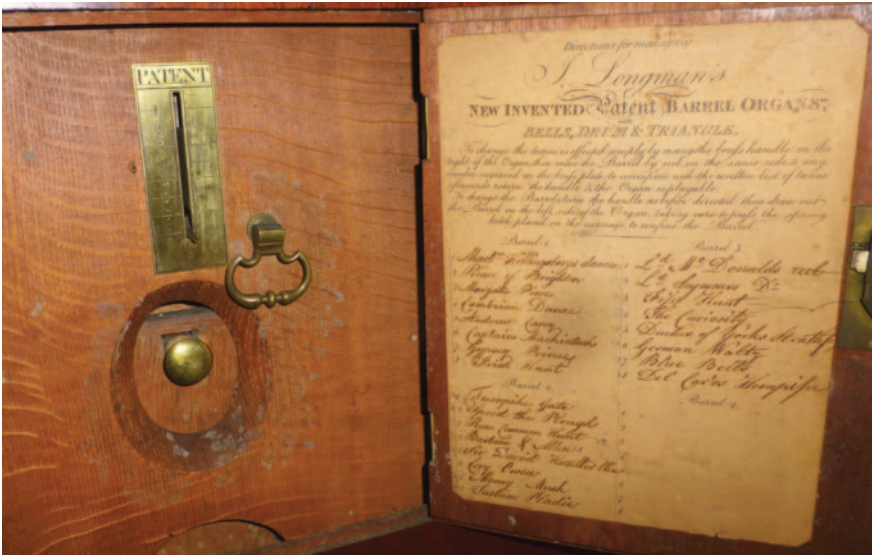 PATENT
Directions for managing
J. Longman's
NEW INVENTED Patent BARREL ORGANS,
with
BELLS, DRUM & TRIANGLE.
To change the tunes is effected simply by the brass handle on the
right of the Organ, then move the Barrel by on the same side to any
number engraved on the brass plate, to correspond with the written list of tunes
afterwards return the handle & the Organ is playable.
To change the Barrels turn the handle as before directed then draw out
the Barrel on the left side of the Organ, taking care to press the spring
catch placed on the carriage to confine the Barrel
Barrel 1
dance
of Brighton
Margate
Cambrian Dance
Andrew Carey
Captain Mackintosh
Gypsey Prince
Hunt
Barrel 2
Turnpike Gate
Speed the Plough
Hunt
Sir David
Cory Owen
Money Musk
Barrel 3
Ld. Mc Donalds reel
Ld. Seymours Do.
Hunt
The Curiosity
of Yorks Strath
German Waltz
Blue Bells
Del Caros Hornpipe
Barrel 4